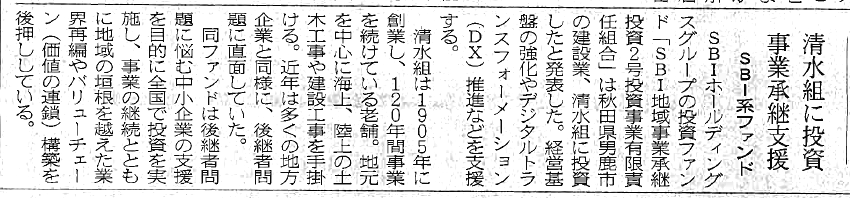 清水組に投資
事業承継支援
SBI系ファンド
SBIホールディング
スグループの投資ファン
ド「SBI地域事業承継
投資2号投資事業有限責
任組合」は秋田県男鹿市
の建設業、清水組に投資
したと発表した。経営基
盤の強化やデジタルトラ
ンスフォーメーション
（DX）推進などを支援
する。
清水組は1905年に
創業し、120年間事業
を続けている老舗。地元
を中心に海上、陸上の土
木工事や建設工事を手掛
ける。近年は多くの地方
企業と同様に、後継者問
題に直面していた。
同ファンドは後継者問
題に悩む中小企業の支援
を目的に全国で投資を実
施し、事業の継続ととも
に地域の垣根を越えた業
界再編やバリューチェー
ン（価値の連鎖）構築を
後押ししている。